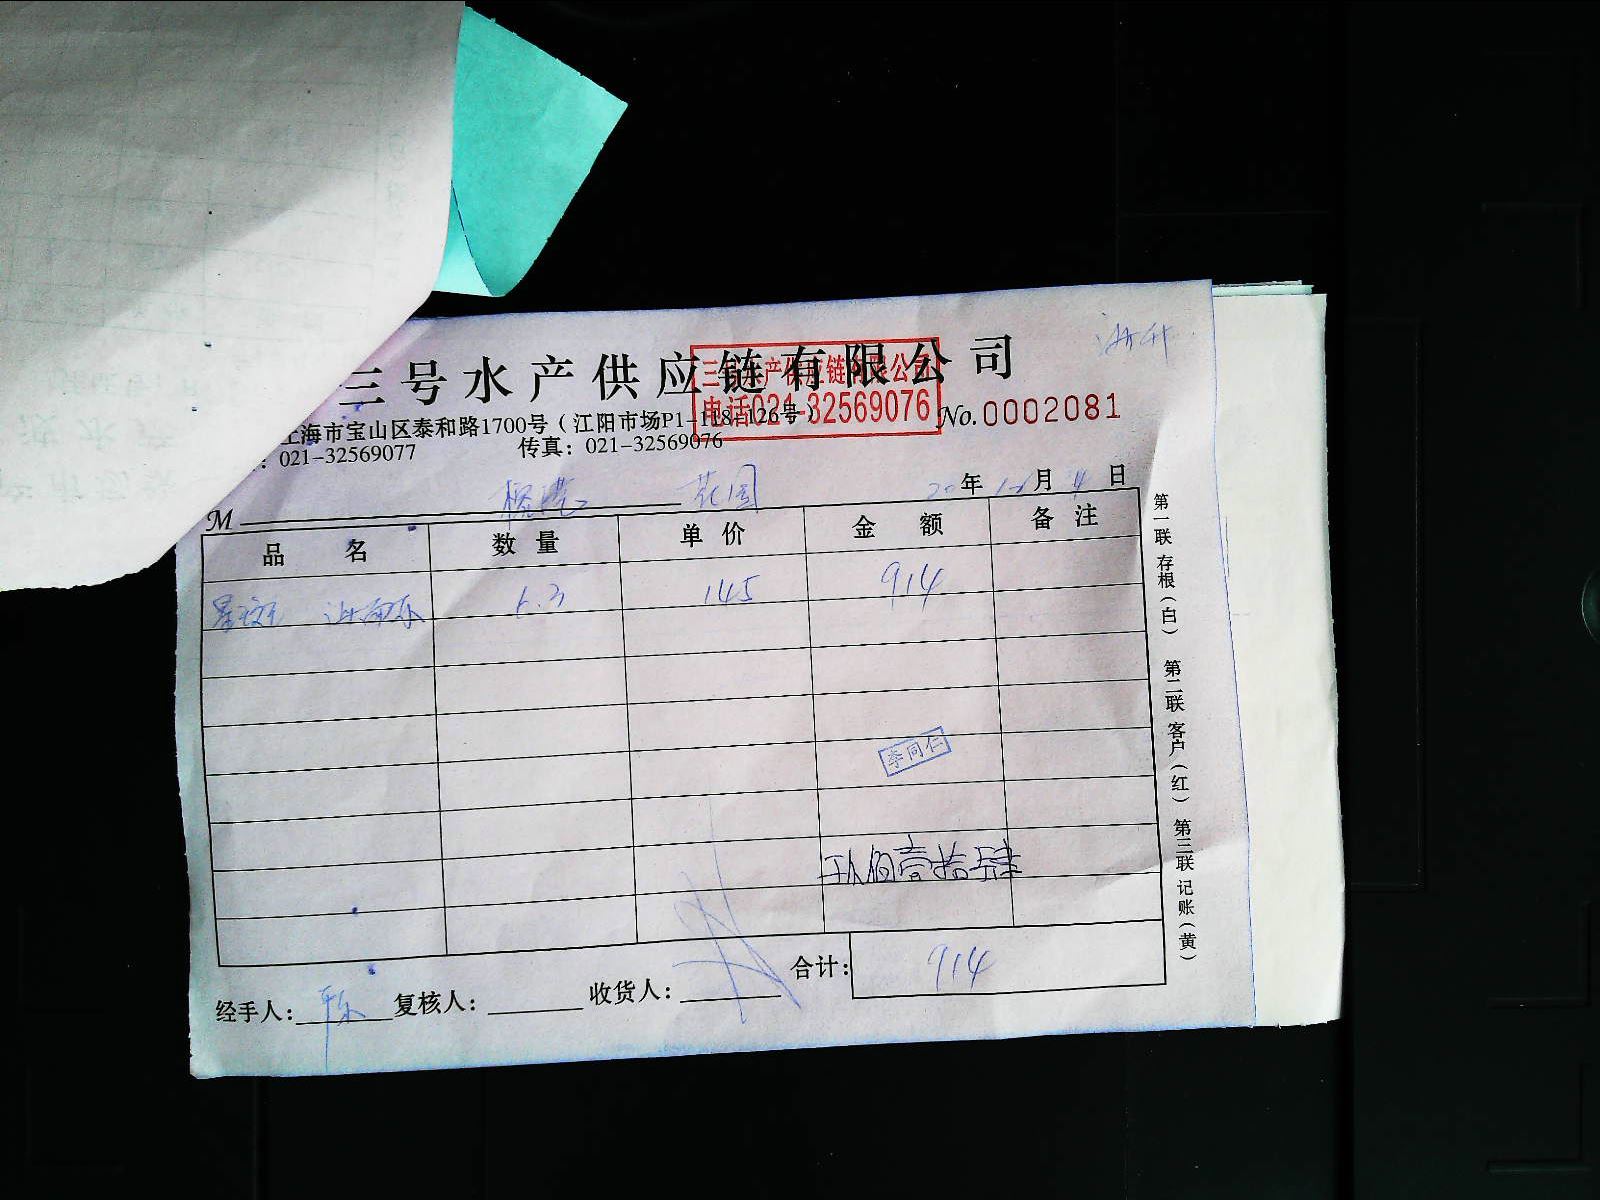 三号水产供应链有限公司
三号水产供应链有限公司
电话021-32569076
上海市宝山区泰和路1700号（江阳市场P1-118-126号）
No.0002081
：021-32569077 传真：021-32569076
M 花园 20年12月4日
品名 数量 单价 金额 备注
6.3 145 914
李同仁
玖佰壹拾肆
合计：914
经手人： 复核人： 收货人：
第一联存根（白） 第二联客户（红） 第三联记账（黄）